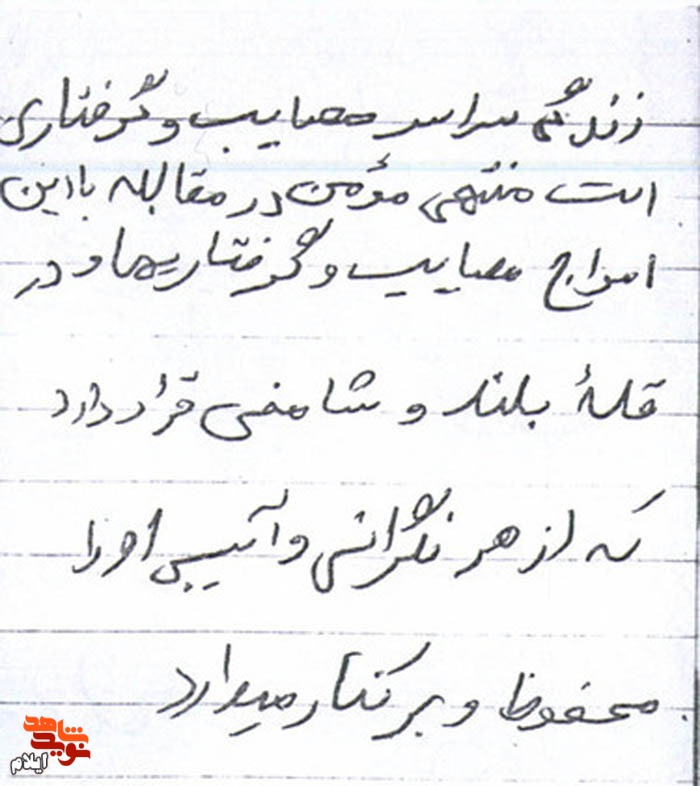 زندگی سراسر مصایب و گرفتاری
است منتهی مؤمن در مقابله با این
امواج مصایب و گرفتاریها و در
قلهٔ بلند و شامخی قرار دارد
که از هر نگرانی و آسیبی او را
محفوظ و بر کنار میدارد.
نوید شاهد
ایلام